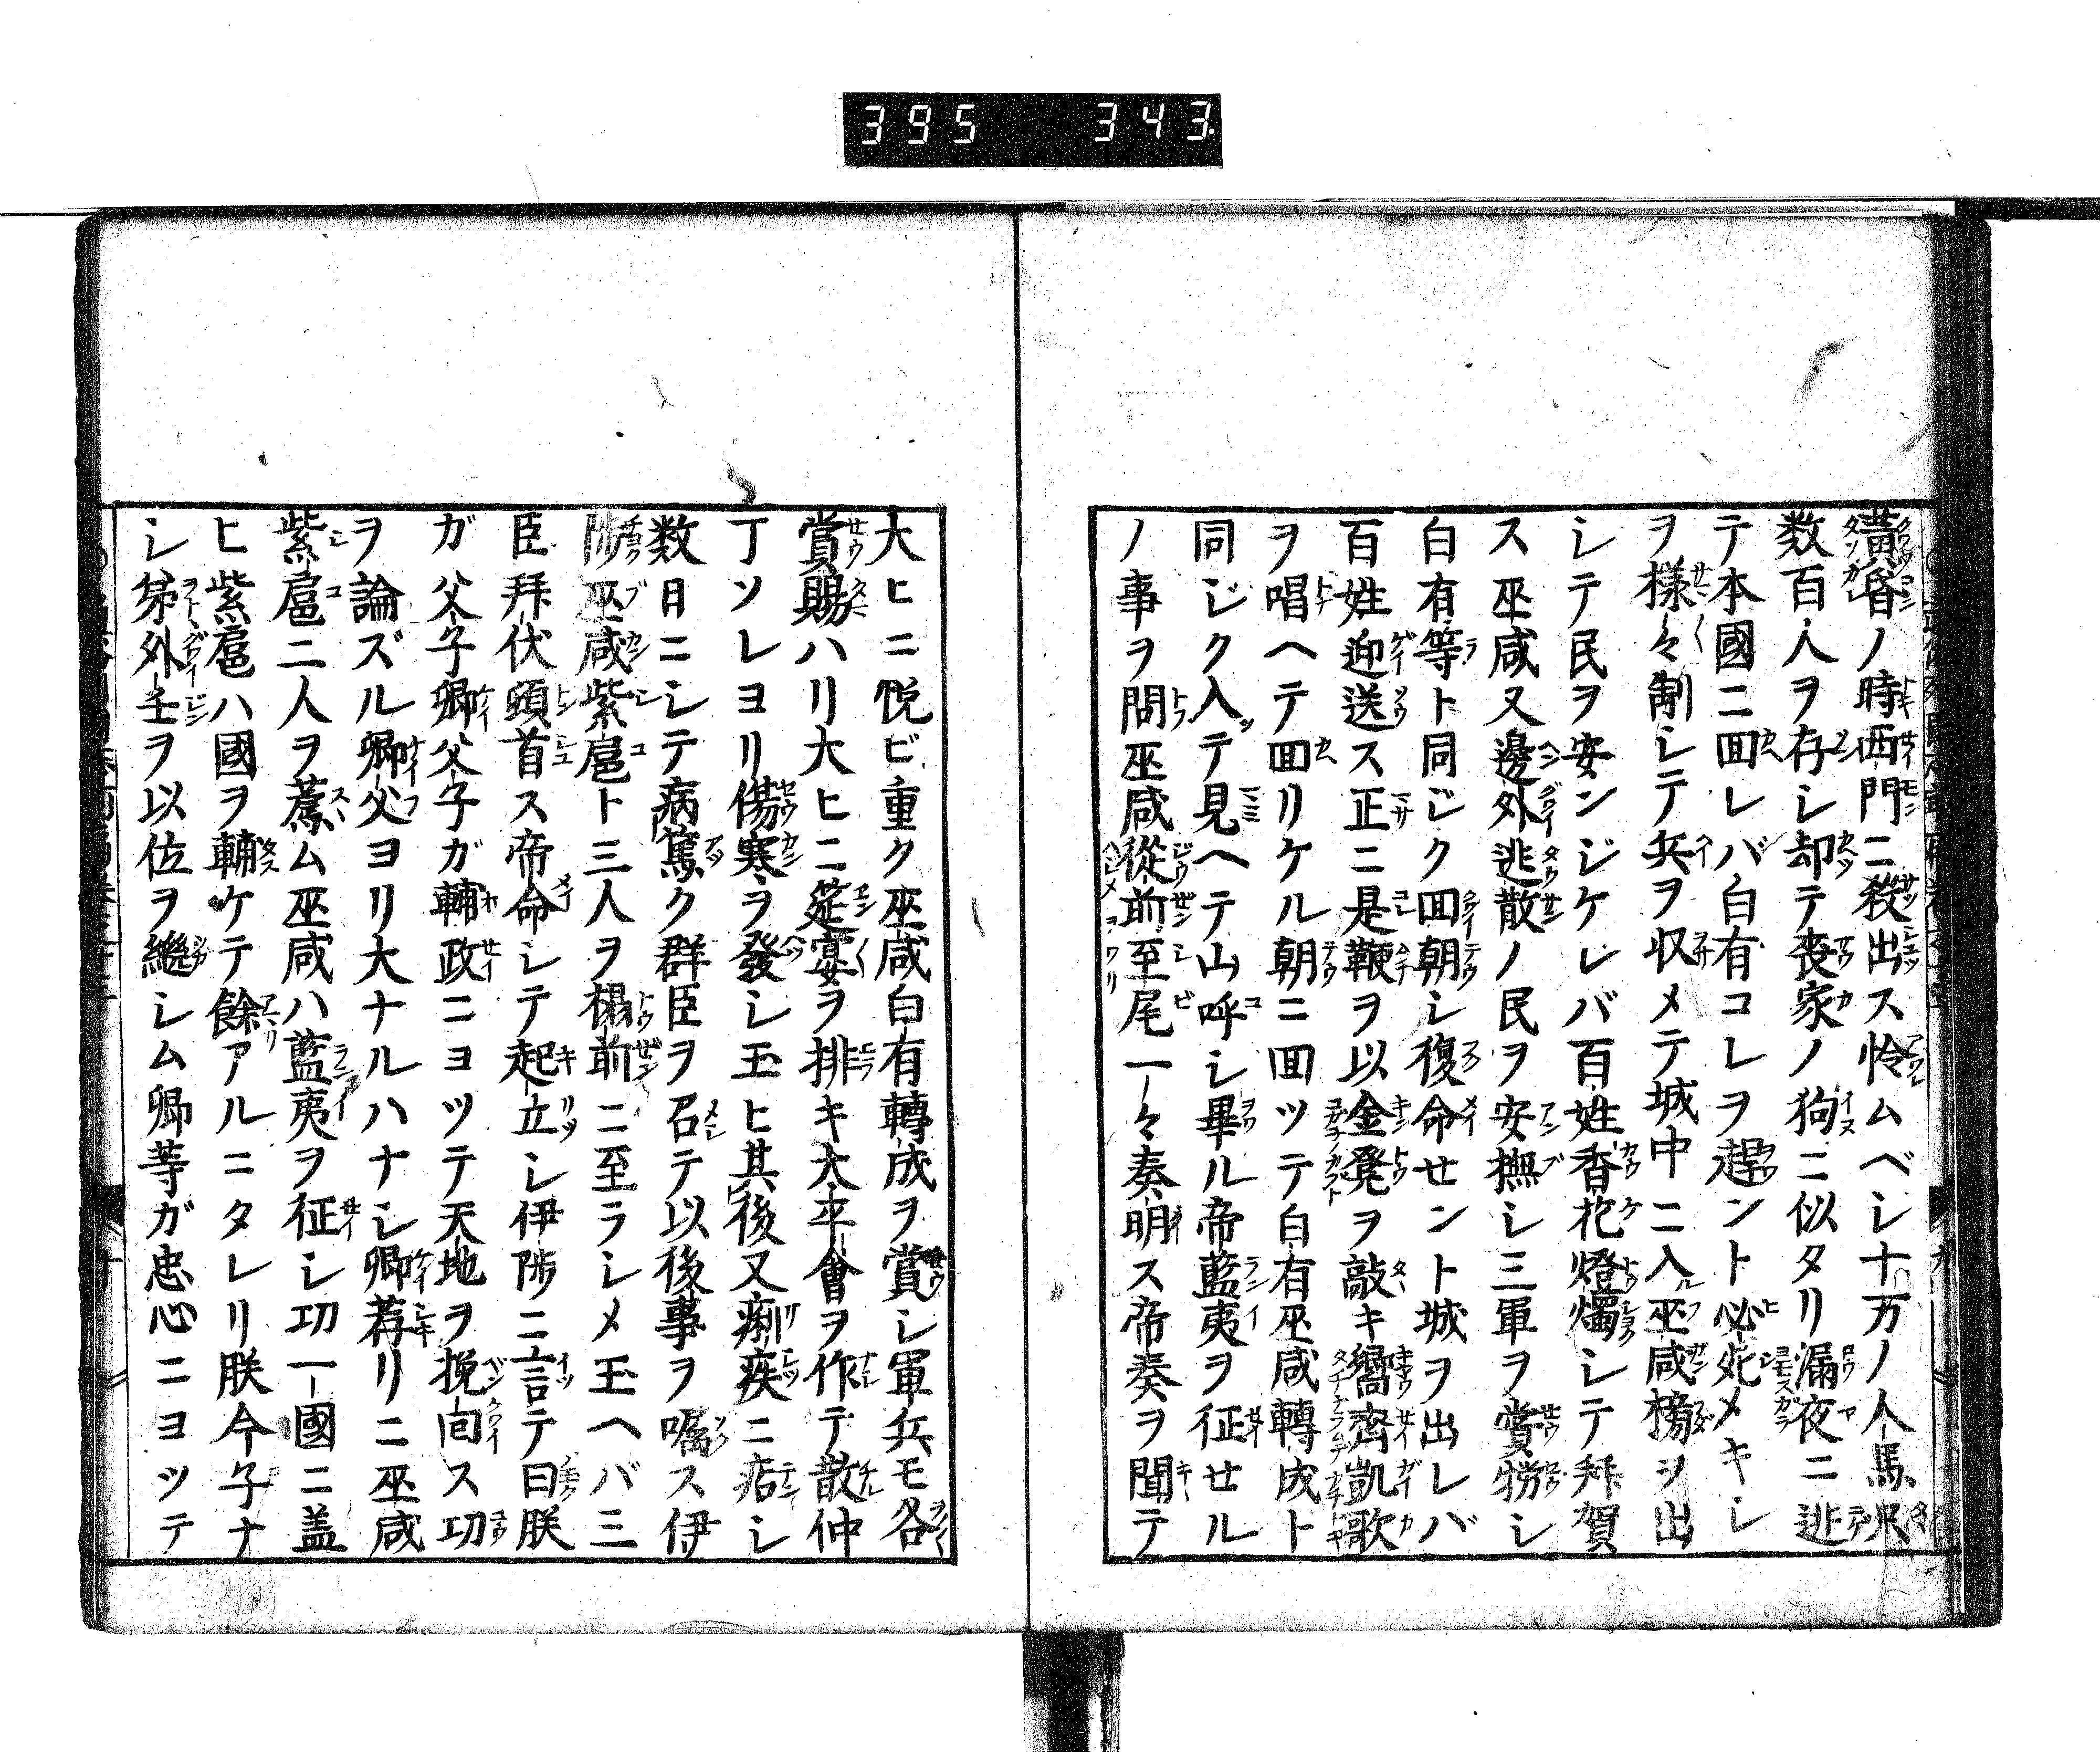 395 343
黄昏ノ時西門ニ殺出ス怜ムベシ十万ノ人馬只
数百人ヲ存シ却テ喪家ノ狗ニ似タリ漏夜ニ逃
テ本國ニ回レバ白有コレヲ趕ント必死メキシ
ヲ様々制シテ兵ヲ収メテ城中ニ入巫咸榜ヲ出
シテ民ヲ安ンジケレバ百姓香花燈燭シテ拜賀
ス巫咸又邊外逃散ノ民ヲ安撫シ三軍ヲ賞勞シ
白有等ト同ジク回朝シ復命セント城ヲ出レバ
百姓迎送ス正ニ是鞭ヲ以金凳ヲ敲キ響齊凱歌
ヲ唱ヘテ回リケル朝ニ回ツテ白有巫咸轉成ト
同ジク入テ見ヘテ山呼シ畢ル帝藍夷ヲ征セル
ノ事ヲ問巫咸從前至尾一々奏明ス帝奏ヲ聞テ
大ヒニ悦ビ重ク巫咸白有轉成ヲ賞シ軍兵モ各
賞賜ハリ大ヒニ筵宴ヲ排キ太平會ヲ作テ散仲
丁ソレヨリ傷寒ヲ發シ玉ヒ其後又痢疾ニ痁シ
数日ニシテ病篤ク群臣ヲ召テ以後事ヲ嘱ス伊
陟巫咸紫扈ト三人ヲ榻前ニ至ラシメ玉ヘバ三
臣拜伏頭首ス帝命シテ起立シ伊陟ニ言テ曰朕
ガ父子卿父子ガ輔政ニヨツテ天地ヲ挽回ス功
ヲ論ズル卿父ヨリ大ナルハナシ卿荐リニ巫咸
紫扈二人ヲ薦ム巫咸ハ藍夷ヲ征シ功一國ニ盖
ヒ紫扈ハ國ヲ輔ケテ餘アルニタレリ朕今子ナ
シ弟外壬ヲ以位ヲ繼シム卿等ガ忠心ニヨツテ